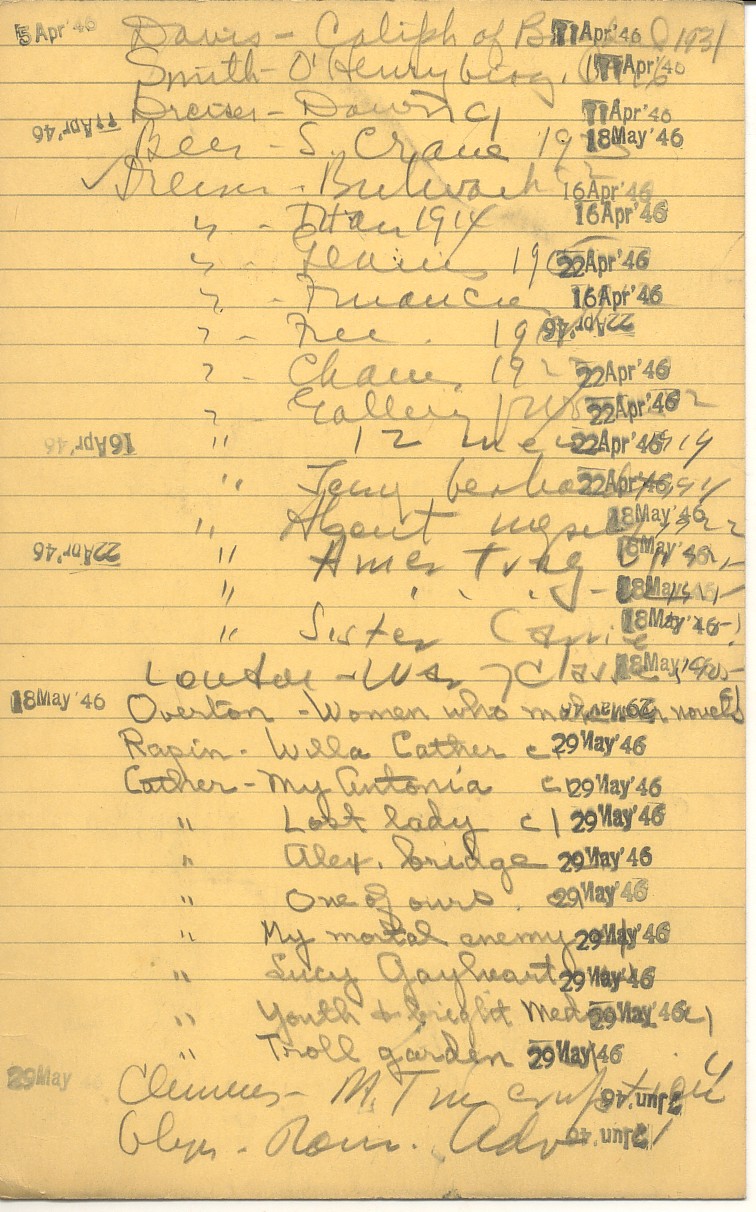 5 Apr '46 Davis - Caliph of B 11 Apr '46 1931
Smith - O'Henry biog. 11 Apr '46
Dreiser - Dawn c1 11 Apr '46
11 Apr '46 Beer - S. Crane 19 18 May '46
✓ Dreiser - Bulwark 16 Apr '46
" - Titan 1914 16 Apr '46
" - Genius 19 22 Apr '46
" - Financier 16 Apr '46
" - Free 19 22 Apr '46
" - Chains 192 22 Apr '46
" Gallery 22 Apr '46
16 Apr '46 " 12 men 22 Apr '46 1919
" 22 Apr '46
" About myself 18 May '46 1922
22 Apr '46 " Amer Trag 18 May '46
" " " 18 May '46
" Sister Carrie 18 May '46
London - War of Class 18 May '46 1905
18 May '46 Overton - Women who make our novels 29 May '46
Rapin - Willa Cather c1 29 May '46
Cather - My Antonia c1 29 May '46
" Lost lady c1 29 May '46
" Alex. bridge 29 May '46
" One of ours. c1 29 May '46
" My mortal enemy 29 May '46
" Lucy Gayheart 29 May '46
" Youth & bright Med 29 May '46 c1
" Troll garden 29 May '46
29 May 46 Clemens - M. T. in eruption 3 Jun '46
- Rom. Adv 3 Jun '46